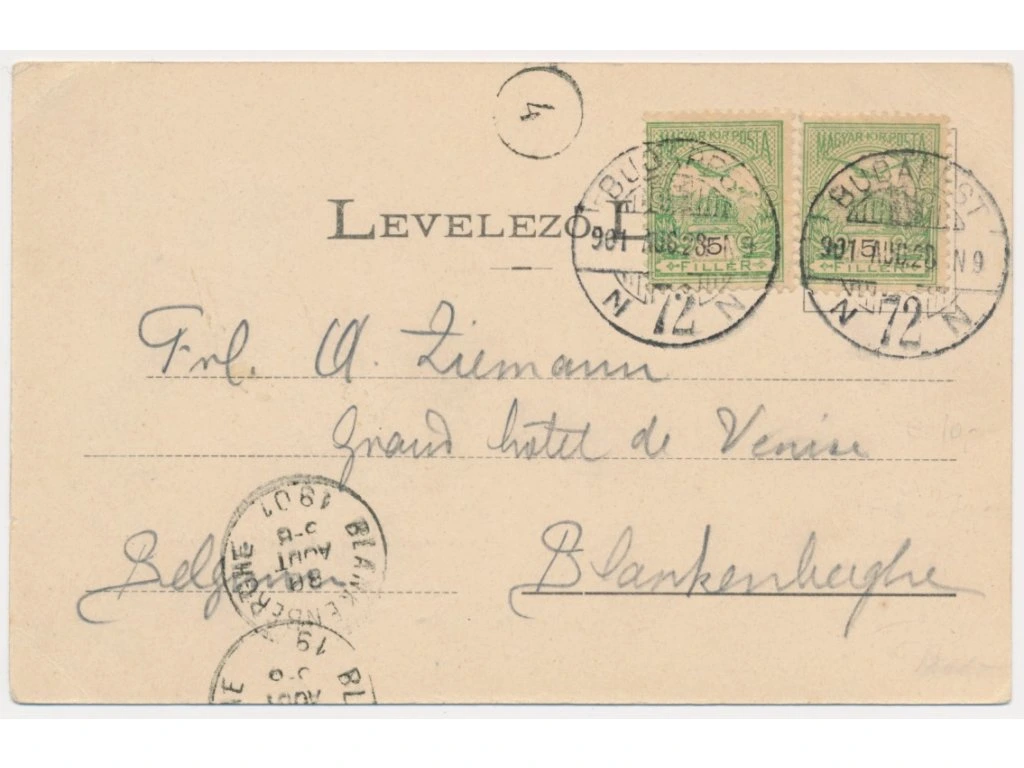 4
MAGYAR KIR. POSTA MAGYAR KIR. POSTA
BUDAPEST BUDAPEST
LEVELEZŐ-L
901 AUG. 28 N 9 901 AUG. 28 N 9
5 5
FILLÉR FILLÉR
N 72 N N 72 N
Frl. A. Ziemann
Grand hôtel de Venise
Belgium Blankenberghe
BLANKENBERGHE
1901
5-6
AOUT
30
BL HE
19
5-6
AOUT